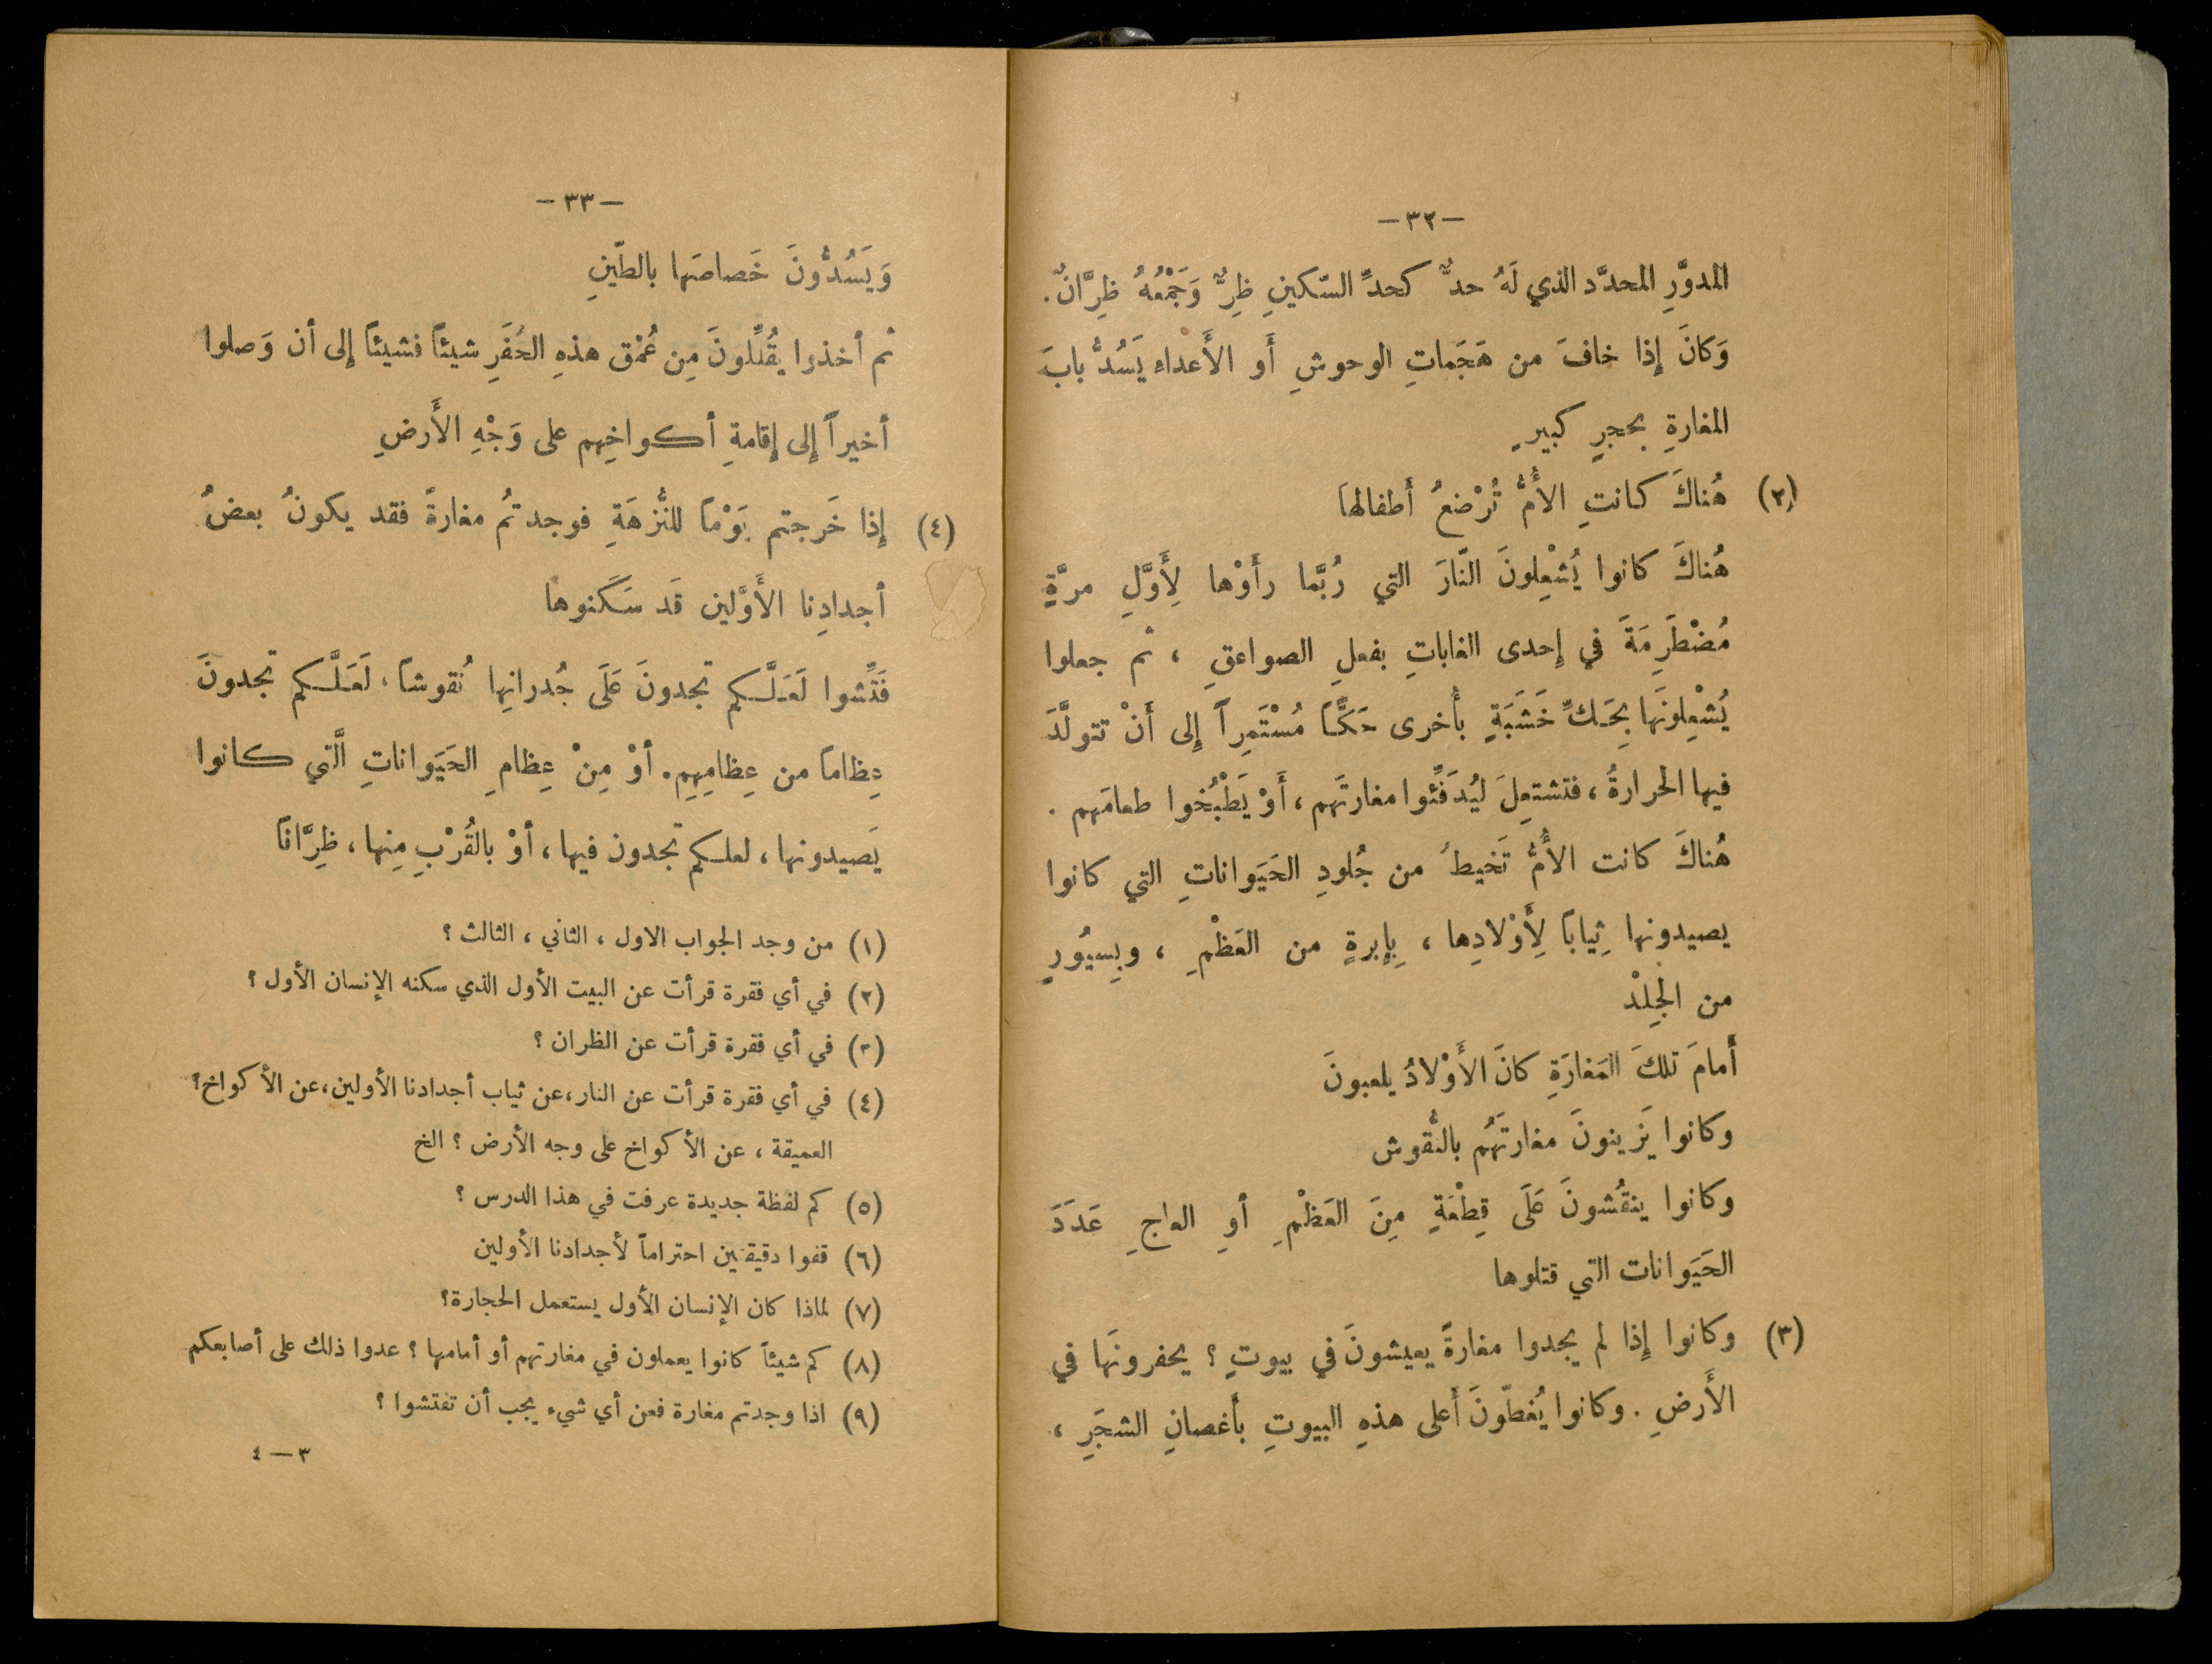 —٣٢—
المدوَّرِ المحدَّد الذي لَهُ حدٌّ كحدِّ السّكينِ ظِرٌّ وَجَمْعُهُ ظِرَّانٌ.
وَكانَ إِذا خافَ من هَجَماتِ الوحوشِ أَو الأَعداءِ يَسُدُّ بابَ
المغارةِ بحجرٍ كبيرٍ
(٢) هُناكَ كانتِ الأُمُّ تُرْضعُ أَطفالهَا
هُناكَ كانوا يُشْعِلونَ النّارَ التي رُبَّما رأَوْها لِأَوَّلِ مرَّةٍ
مُضْطَرِمَةً في إِحدى الغاباتِ بفعلِ الصواعقِ ، ثم جعلوا
يُشْعِلونَها بِحَكِّ خَشَبَةٍ بأُخرى حَكًّا مُسْتَمِراً إِلى أَنْ تتولَّدَ
فيها الحرارةُ ، فتشتعِلَ ليُدَفِّئُوا مغارتَهم ، أَوْ يَطْبُخوا طعامَهم .
هُناكَ كانت الأُمُّ تَخيطُ من جُلودِ الحَيَواناتِ التي كانوا
يصيدونها ثِياباً لِأَوْلادِها ، بِإِبرةٍ من العَظْمِ ، وبِسيُورٍ
من الجِلِدْ
أَمامَ تلكَ المَغارَةِ كانَ الأَوْلادُ يلعبونَ
وكانوا يَزينونَ مغارتَهُم بالنُّقوش
وكانوا ينقُشونَ عَلَى قِطْعَةٍ مِنَ العَظْمِ أوِ العاجِ عَدَدَ
الحَيَوانات التي قتلوها
(٣) وكانوا إِذا لم يجدوا مغارةً يعيشونَ في بيوتٍ ؟ يحفرونَها في
الأَرضِ . وكانوا يُغطّونَ أَعلى هذهِ البيوتِ بأَغصانِ الشجَرِ ،
—٣٣—
وَيَسُدُّونَ خَصاصَها بالطّينِ
ثم أخذوا يقُلِّلونَ مِن عُمْق هذهِ الحُفَرِ شيئاً فشيئاً إِلى أن وَصلوا
أخيراً إِلى إِقامةِ أكواخِهم على وَجْهِ الأَرضِ
(٤) إِذا خَرجتم يَوْماً للنُّزهَةِ فوجدتمُ مغارةً فقد يكونُ بعضُ
أجدادِنا الأَوَّلين قَد سَكَنوها
فَتِّشوا لَعَلَّكم تجدونَ عَلَى جُدرانِها نُقوشاً ، لَعَلَّكم تجدونَ
عِظاماً من عِظامِهِم. أوْ مِنْ عِظامِ الحَيَواناتِ الَّتي كانوا
يَصيدونها ، لعلكم تجدون فيها ، أوْ بالقُرْبِ مِنها ، ظِرَّاناً
(١) من وجد الجواب الاول ، الثاني ، الثالث ؟
(٢) في أي فقرة قرأت عن البيت الأول الذي سكنه الإنسان الأول ؟
(٣) في أي فقرة قرأت عن الظران ؟
(٤) في أي فقرة قرأت عن النار ،عن ثياب أجدادنا الأولين ،عن الأكواخ؟
العميقة ، عن الأكواخ على وجه الأرض ؟ الخ
(٥) كم لفظة جديدة عرفت في هذا الدرس ؟
(٦) قفوا دقيقتين احتراماً لأجدادنا الأولين
(٧) لماذا كان الإنسان الأول يستعمل الحجارة؟
(٨) كم شيئاً كانوا يعملون في مغارتهم أو أمامها ؟ عدوا ذلك على أصابعكم
(٩) اذا وجدتم مغارة فعن أي شيء يجب أن تفتشوا ؟
٣—٤